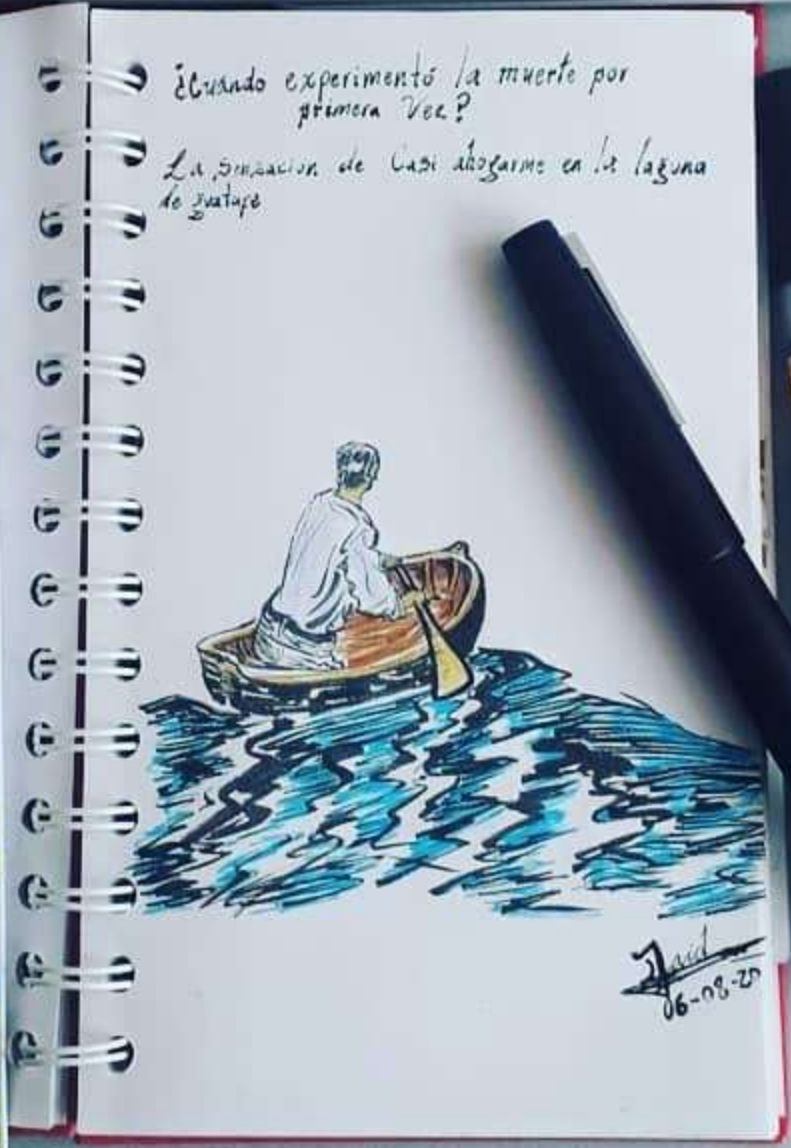 ¿Cuándo experimentó la muerte por
primera vez?
La sensacion de casi ahogarme en la laguna
de guatape
06-08-20